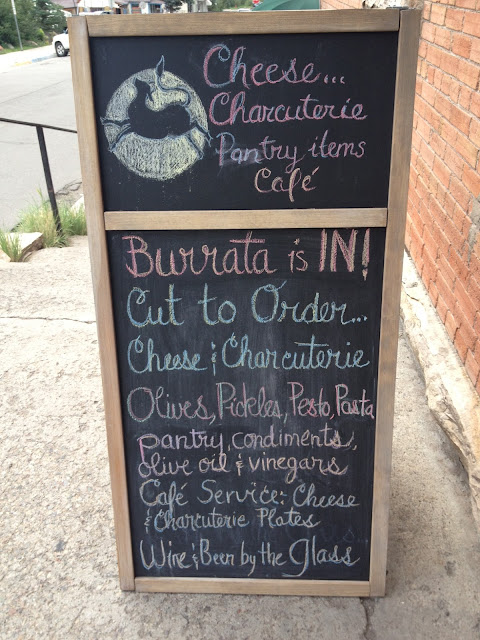 Cheese...
Charcuterie
Pantry items
Café
Burrata is IN!
Cut to Order...
Cheese & Charcuterie
Olives, Pickles, Pesto, Pasta
pantry, condiments,
olive oil & vinegars
Café Service: Cheese
& Charcuterie Plates
Wine & Beer by the Glass